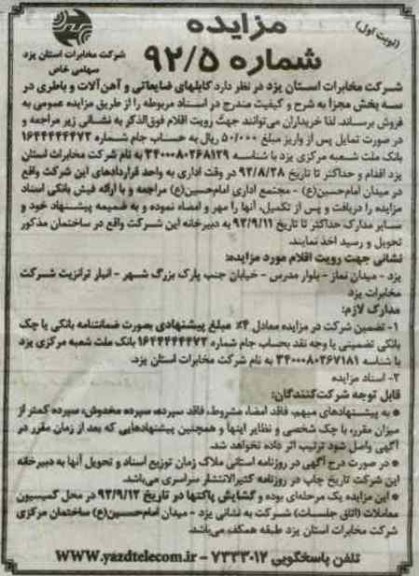 (نوبت اول)
مزایده
شماره ۹۲/۵
شرکت مخابرات استان یزد
سهامی خاص
شرکت مخابرات استان یزد در نظر دارد کابلهای ضایعاتی و آهن‌آلات و باطری در
سه بخش مجزا به شرح و کیفیت مندرج در اسناد مربوطه را از طریق مزایده عمومی به
فروش برساند. لذا خریداران می‌توانند جهت رویت اقلام فوق‌الذکر به نشانی زیر مراجعه و
در صورت تمایل پس از واریز مبلغ ۵۰/۰۰۰ ریال به حساب جام شماره ۱۶۴۴۴۴۴۴۷۲
بانک ملت شعبه مرکزی یزد با شناسه ۳۴۰۰۰۸۰۲۶۸۱۲۹ به نام شرکت مخابرات استان
یزد اقدام و حداکثر تا تاریخ ۹۲/۸/۲۸ در وقت اداری به واحد قراردادهای این شرکت واقع
در میدان امام‌حسین(ع) - مجتمع اداری امام‌حسین(ع) مراجعه و با ارائه فیش بانکی اسناد
مزایده را دریافت و پس از تکمیل، آنها را مهر و امضاء نموده و به ضمیمه پیشنهاد خود و
سایر مدارک حداکثر تا تاریخ ۹۲/۹/۱۱ به دبیرخانه این شرکت واقع در ساختمان مذکور
تحویل و رسید اخذ نمایند.
نشانی جهت رویت اقلام مورد مزایده:
یزد - میدان نماز - بلوار مدرس - خیابان جنب پارک بزرگ شهر - انبار ترانزیت شرکت
مخابرات یزد
مدارک لازم:
۱- تضمین شرکت در مزایده معادل ۴٪ مبلغ پیشنهادی بصورت ضمانتنامه بانکی یا چک
بانکی تضمینی یا وجه نقد بحساب جام شماره ۱۶۴۴۴۴۴۴۷۲ بانک ملت شعبه مرکزی یزد
با شناسه ۳۴۰۰۰۸۰۲۶۷۱۸۱ به نام شرکت مخابرات استان یزد.
۲- اسناد مزایده
قابل توجه شرکت‌کنندگان:
* به پیشنهادهای مبهم، فاقد امضاء، مشروط، فاقد سپرده، سپرده مخدوش، سپرده کمتر از
میزان مقرر، با چک شخصی و نظایر اینها و همچنین پیشنهادهایی که بعد از زمان مقرر در
آگهی واصل شود ترتیب اثر داده نخواهد شد.
* در صورت درج آگهی در روزنامه استانی ملاک زمان توزیع اسناد و تحویل آنها به دبیرخانه
این شرکت تاریخ چاپ در روزنامه کثیرالانتشار سراسری می‌باشد.
* این مزایده یک مرحله‌ای بوده و گشایش پاکتها در تاریخ ۹۲/۹/۱۲ در محل کمیسیون
معاملات (اتاق جلسات) شرکت به نشانی یزد - میدان امام‌حسین(ع) ساختمان مرکزی
شرکت مخابرات استان یزد طبقه همکف می‌باشد.
تلفن پاسخگویی ۷۲۳۳۰۱۲ - www.yazdtelecom.ir